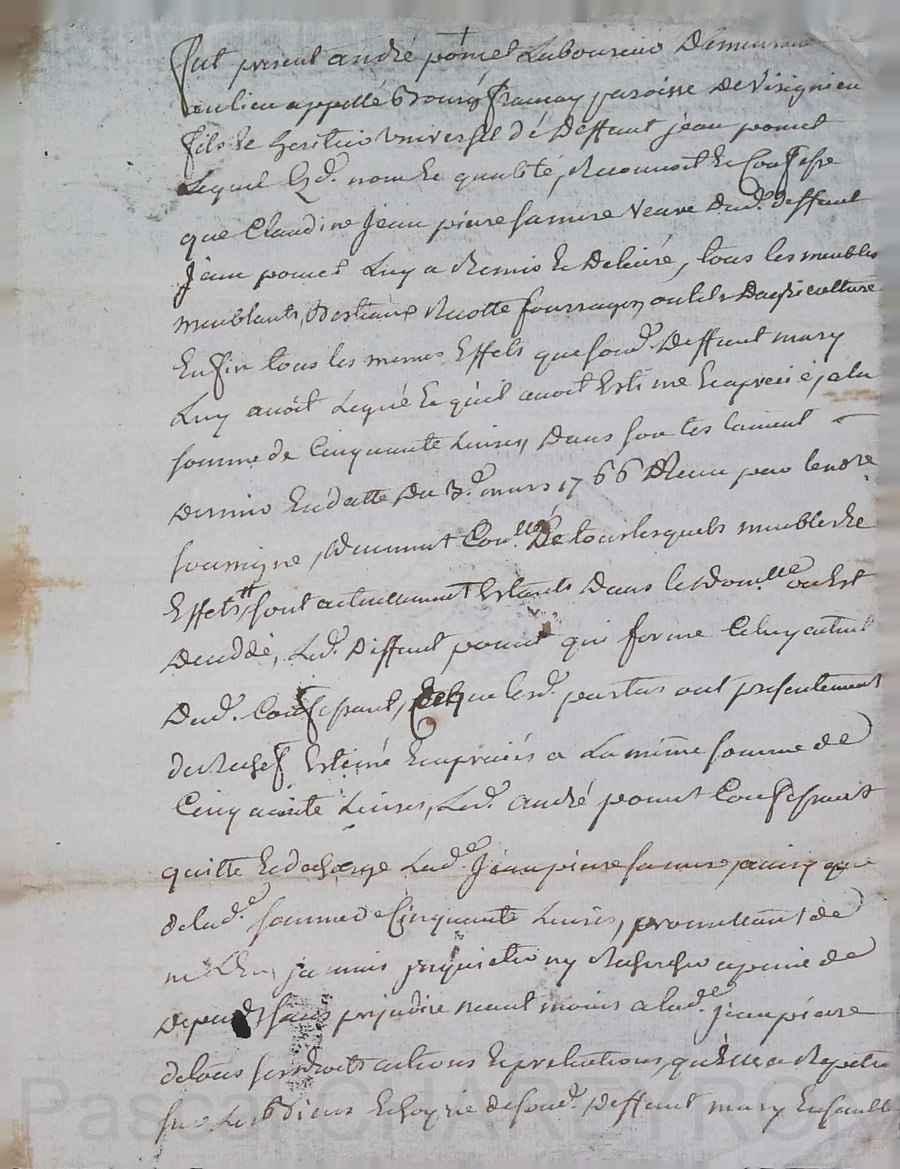 fut present andré pomet Laboureur Demeurant
au lieu appellé Bourg paroisse de
fils & heritier universel de deffunt jean pomet
Lequel aud. nom & qualité, Reconnoit & Confesse
que Claudine Jean pierre sa mere veuve dud. deffunt
Jean pomet Luy a Remis & Delivré, tous les meubles
meublants, Bestiaux Recotte fourrages, outils D'agriculture
Enfin tous les memes Effets que sond. Deffunt mary
Luy avoit Legué & qu'il avoit Estimé & apreciés, a la
somme de Cinquante Livres, Dans son testament
Dernier En datte du 3e. mars 1766 Reçu par le nore.
soussigné, Duement Conllé, De tous lesquels meubles &
Effets sont actuellement Estants Dans le Domlle ou Est
Deceddé, Led. Deffunt pomet qui forme Celuy actuel
Dud. Confessant, & que lesd. parties ont presentement
de Rechef Estimé & apreciés a La même somme de
Cinquante Livres, Led. andré pomet Confessant
quitte & decharge Lad. Jean pierre sa mere
de lad. somme de Cinquante Livres, promettant de
ne L'En jamais inquieter ny Rechercher a peine de
Depends sans prejudice neant moins a lad. Jean pierre
de tous ses droits actions & pretentions, qu'Elle a Repeter
sur Les Biens & hoyrie de sond. deffunt mary
Pascal CHAREYRON